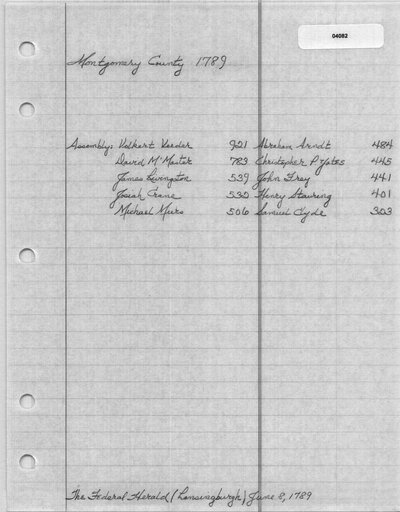 04082
Montgomery County 1789
Assembly: Volkert Veeder 921 Abraham Arndt 484
David McMaster 783 Christopher P Yates 445
James Livingston 539 John Frey 441
Josiah Crane 530 Henry Stauring 401
Michael Myers 506 Samuel Clyde 303
The Federal Herald (Lansingburgh) June 8, 1789